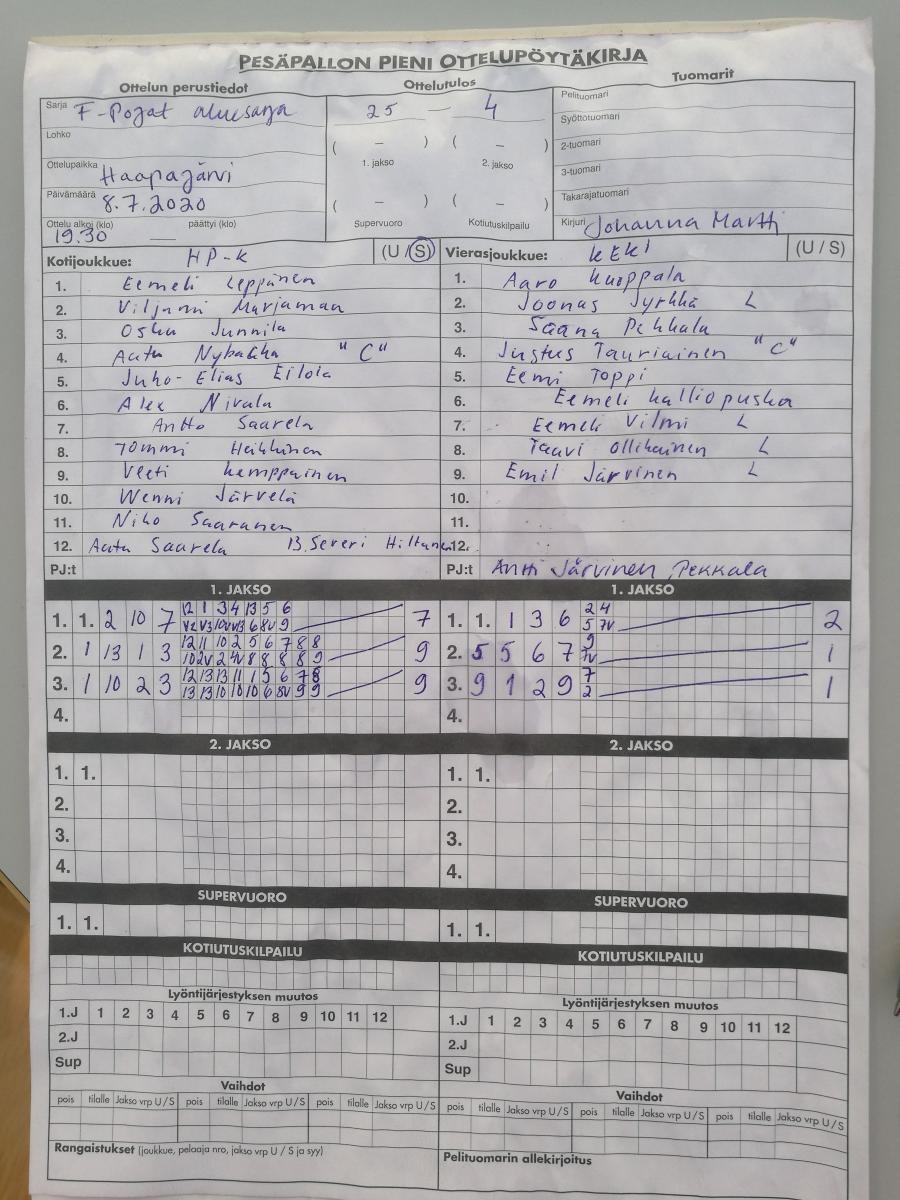 PESÄPALLON PIENI OTTELUPÖYTÄKIRJA
Ottelun perustiedot Ottelutulos Tuomarit
Sarja F-Pojat aluesarja 25 — 4 Pelituomari
Lohko Syöttötuomari
( – ) ( – ) 2-tuomari
Ottelupaikka Haapajärvi 1. jakso 2. jakso 3-tuomari
Päivämäärä 8.7.2020 ( – ) ( – ) Takarajatuomari
Ottelu alkoi (klo) päättyi (klo) Supervuoro Kotiutuskilpailu Kirjuri Johanna Martti
19.30 —
Kotijoukkue: HP-K (U / S) Vierasjoukkue: KEKI (U / S)
1. Eemeli Leppänen 1. Aaro Kuoppala
2. Viljami Marjamaa 2. Joonas Jyrkkä L
3. Osku Junnila 3. Saana Pekkala
4. Aatu "C" 4. Justus Tauriainen "C"
5. Juho-Elias Eilola 5. Eemi Toppi
6. Alex Nivala 6. Eemeli Kalliopuska
7. Antto Saarela 7. Eemeli Vilmi L
8. Tommi Heikkinen 8. Taavi Ollikainen L
9. Veeti Kemppainen 9. Emil Järvinen L
10. Wenni Järvelä 10.
11. Niko Saaranen 11.
12. Aatu Saarela 13. Severi Hiltunen 12.
PJ:t PJ:t Antti Järvinen, Pekkala
1. JAKSO 1. JAKSO
12 1 3 4 13 5 6 2 4
1. 1. 2 10 7 7 1. 1. 1 3 6 5 7V 2
12 11 10 2 5 6 7 8 8 9
2. 1 13 1 3 9 2. 5 5 6 7 1
12 13 13 11 1 5 6 7 8 7
3. 1 10 2 3 13 13 10 10 10 6 8V 9 9 9 3. 9 1 2 9 2 1
4. 4.
2. JAKSO 2. JAKSO
1. 1. 1. 1.
2. 2.
3. 3.
4. 4.
SUPERVUORO SUPERVUORO
1. 1. 1. 1.
KOTIUTUSKILPAILU KOTIUTUSKILPAILU
Lyöntijärjestyksen muutos Lyöntijärjestyksen muutos
1.J 1 2 3 4 5 6 7 8 9 10 11 12 1.J 1 2 3 4 5 6 7 8 9 10 11 12
2.J 2.J
Sup Sup
Vaihdot Vaihdot
pois tilalle Jakso vrp U / S pois tilalle Jakso vrp U / S pois tilalle Jakso vrp U / S pois tilalle Jakso vrp U / S pois tilalle Jakso vrp U / S pois tilalle Jakso vrp U / S
Rangaistukset (joukkue, pelaaja nro, jakso vrp U / S ja syy) Pelituomarin allekirjoitus